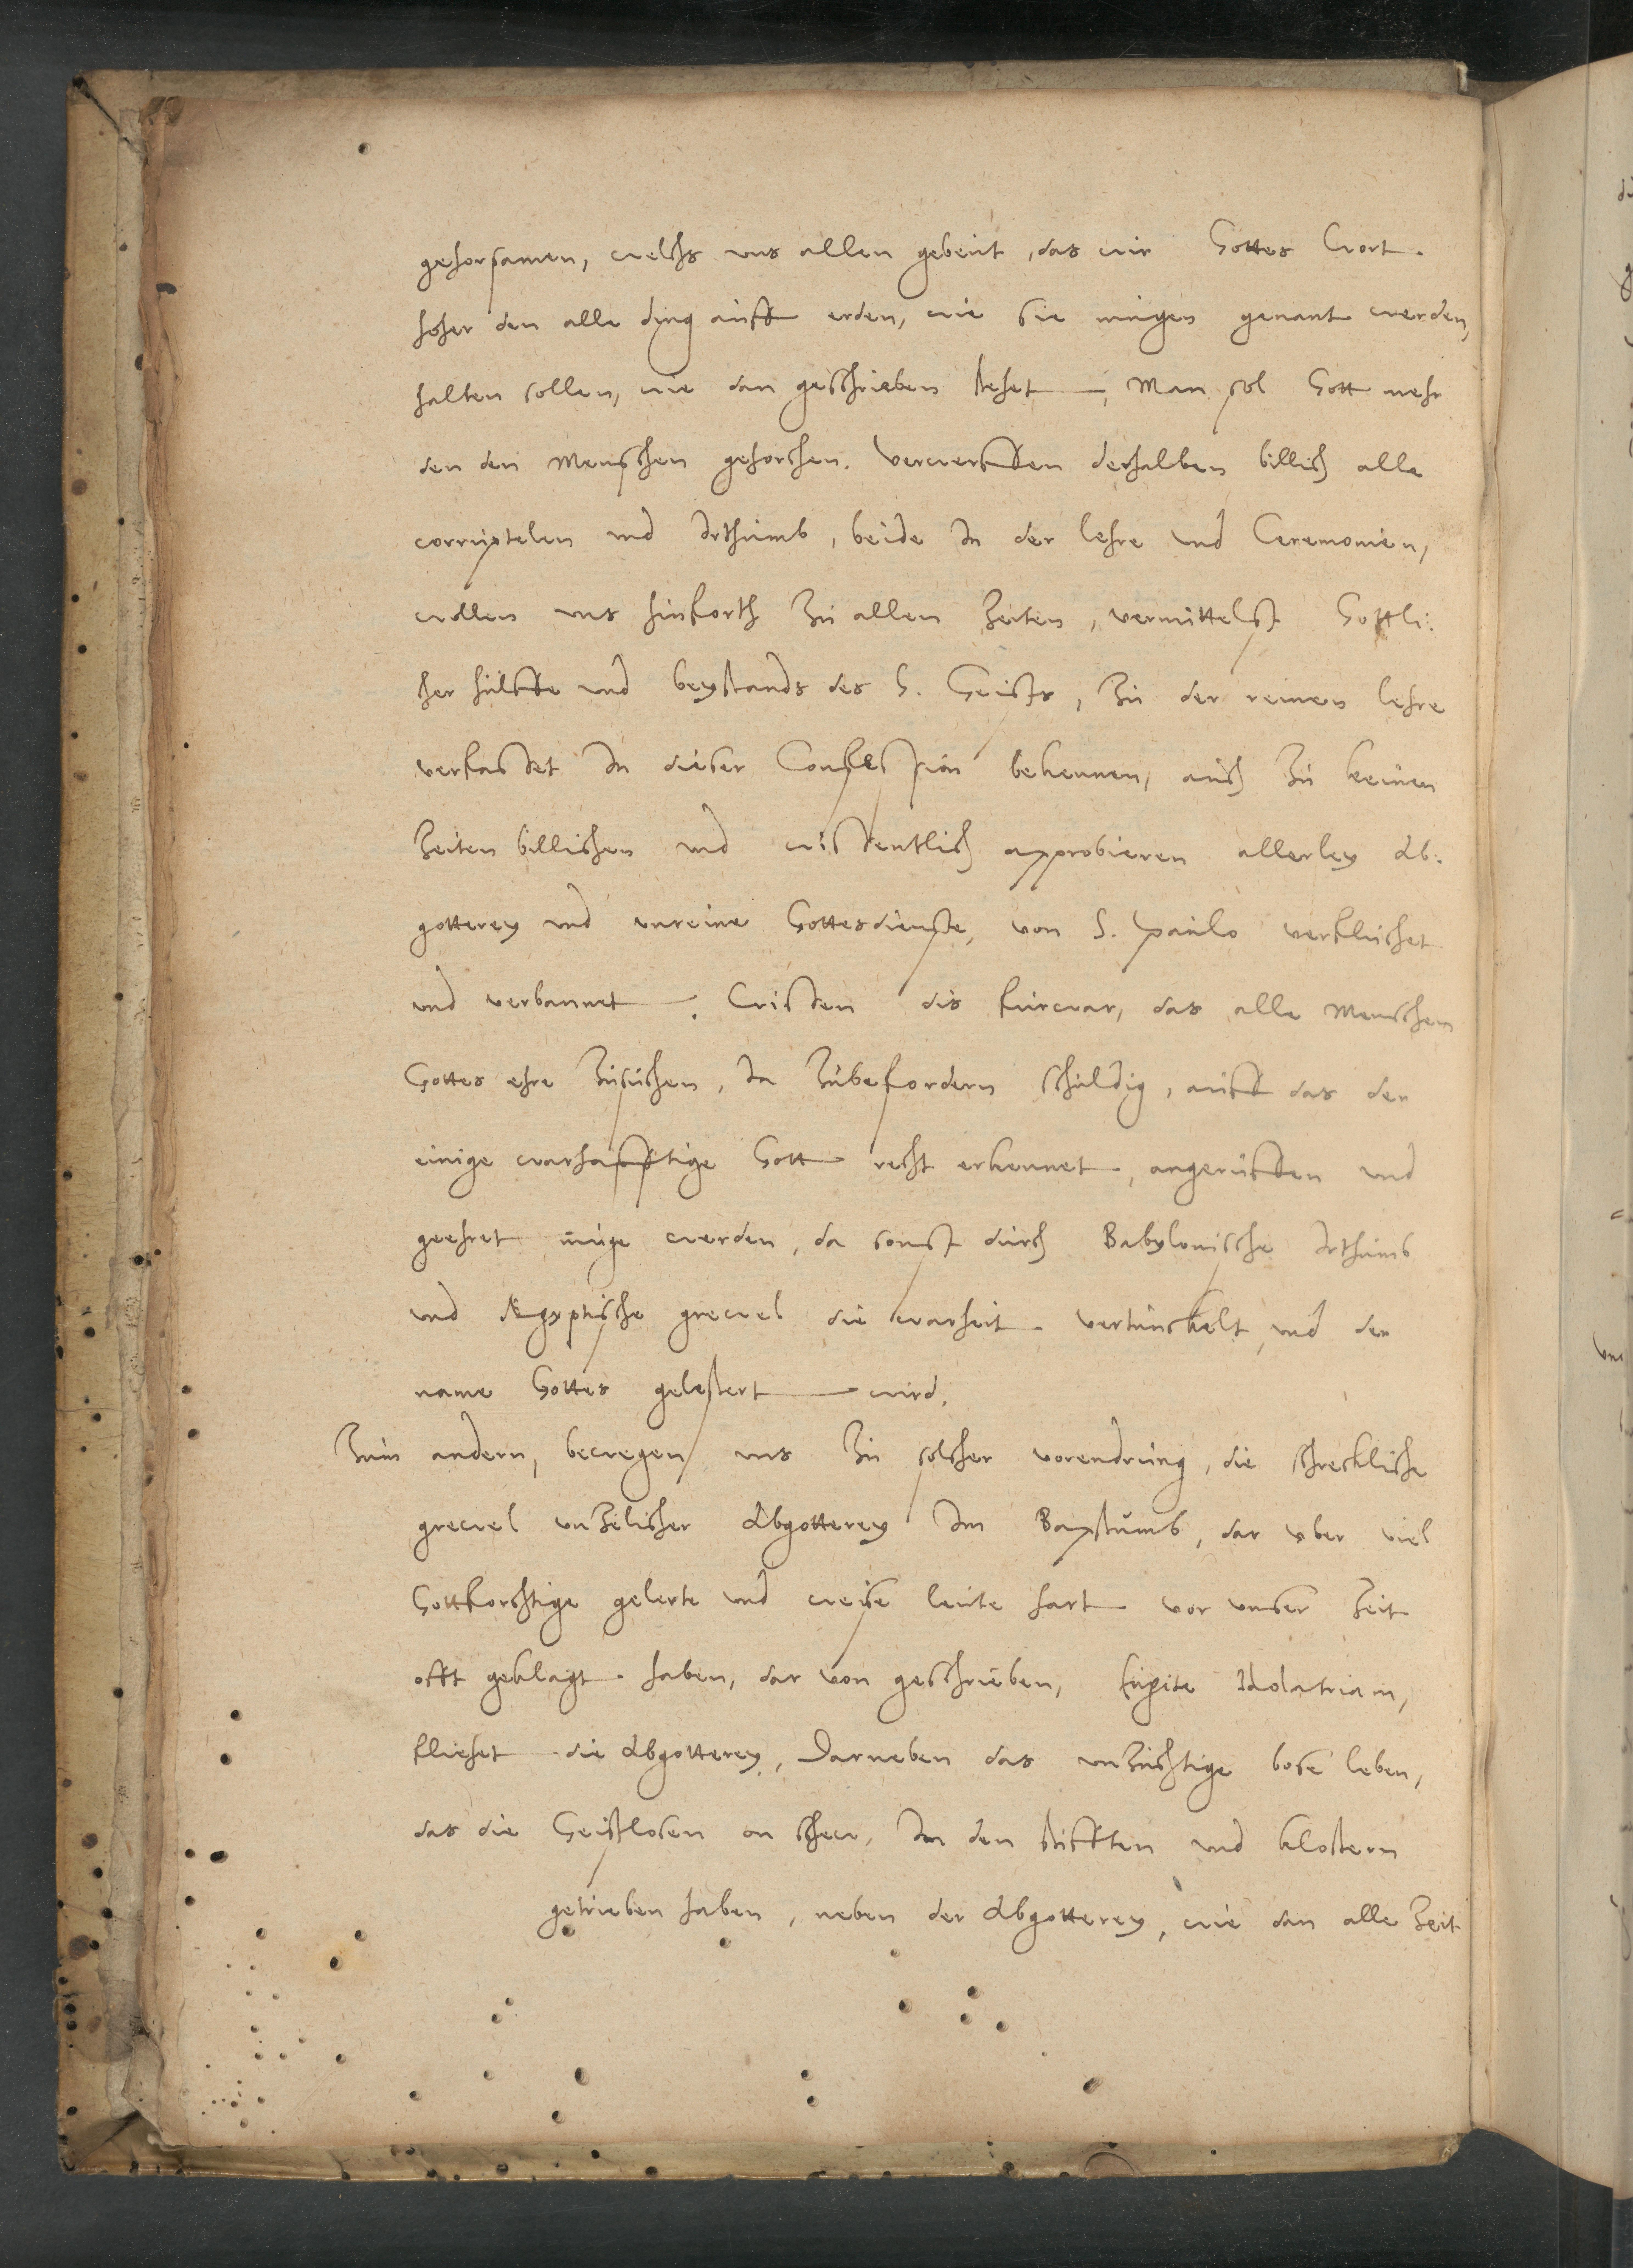 gehorsamen, welchs uns allen gebeut, das wir Gottes Wort
hoher den alle ding auff erden, wie sie mugen genant werden,
halten sollen, wie dan geschrieben stehet, Man sol Gott mehr
den den Menschen gehorchen. Verwerffen derhalben billich alle
corruptelen und Irthumb, beide In der lehre und Ceremonien,
wollen uns hinforth Zu allen Zeiten, vermittelst Gottli:
cher hulffe und beystands des H. Geists, Zu der reinen lehre
verfasset In dieser Confession bekennen, auch Zu keinen
Zeiten billichen und wissentlich approbieren allerley Ab:
gotterey und unreine Gottesdienste, von S. paulo verfluchet
und verbannet. Wissen dis furwar, das alle Menschen
Gottes ehre Zusuchen, Ia Zubefordern schuldig, auff das der
einige warhafftige Gott recht erkennet, angeruffen und
geehret muge werden, da sonst durch Babylonische Irthumb
und Ægyptische grewel die warheit vertunckelt, und der
name Gottes gelestert wird.
Zum andern, bewegen uns Zu solcher vorendrung, die schreckliche
grewel unzelicher Abgotterey Im Bapstumb, dar uber viel
Gottforchtige gelerte und weise leute hart vor unser Zeit
offt geklagt haben, dar von geschrieben, fugite Idolatriam,
fliehet die Abgotterey, Darneben das unzuchtige bose leben,
das die Geistlosen on schew, In den stifften und klostern
getrieben haben, neben der Abgotterey, wie dan alle Zeit